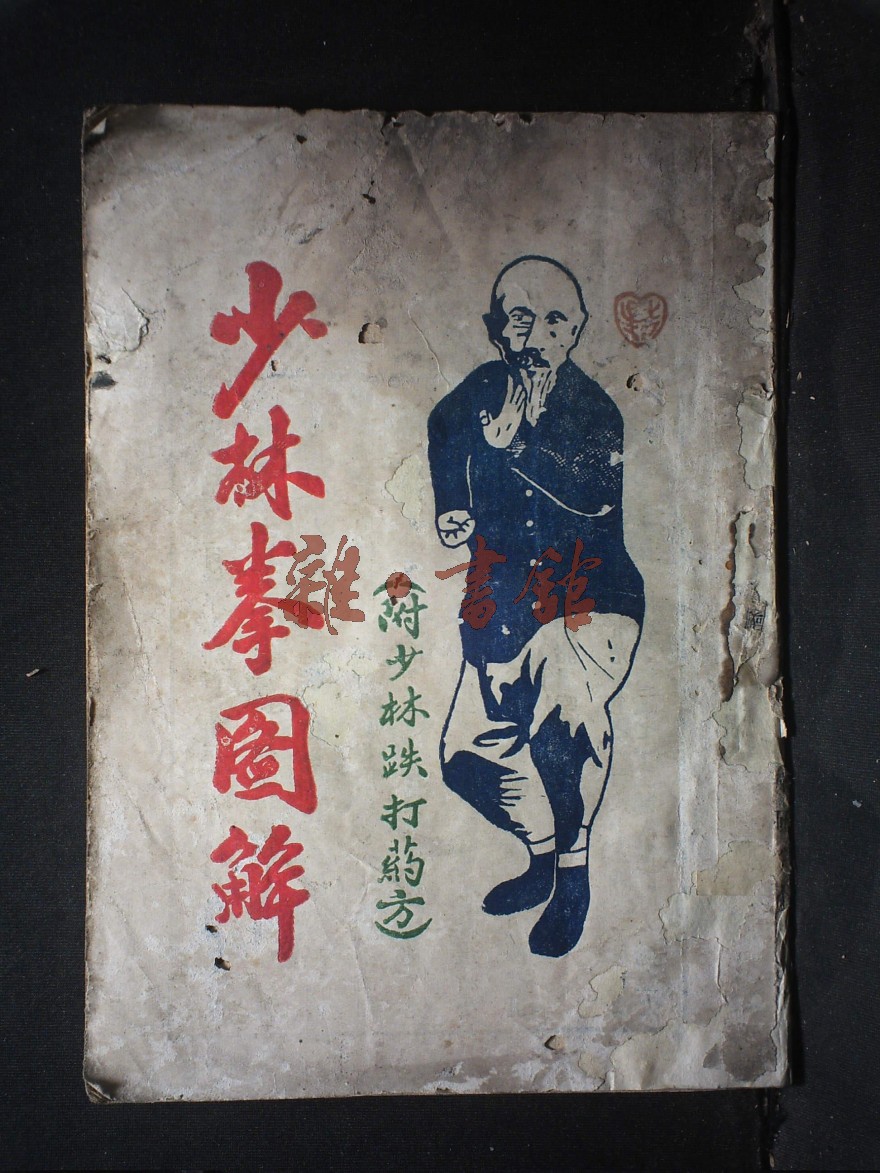 少林拳圖解
(附少林跌打葯方)
雜·書館